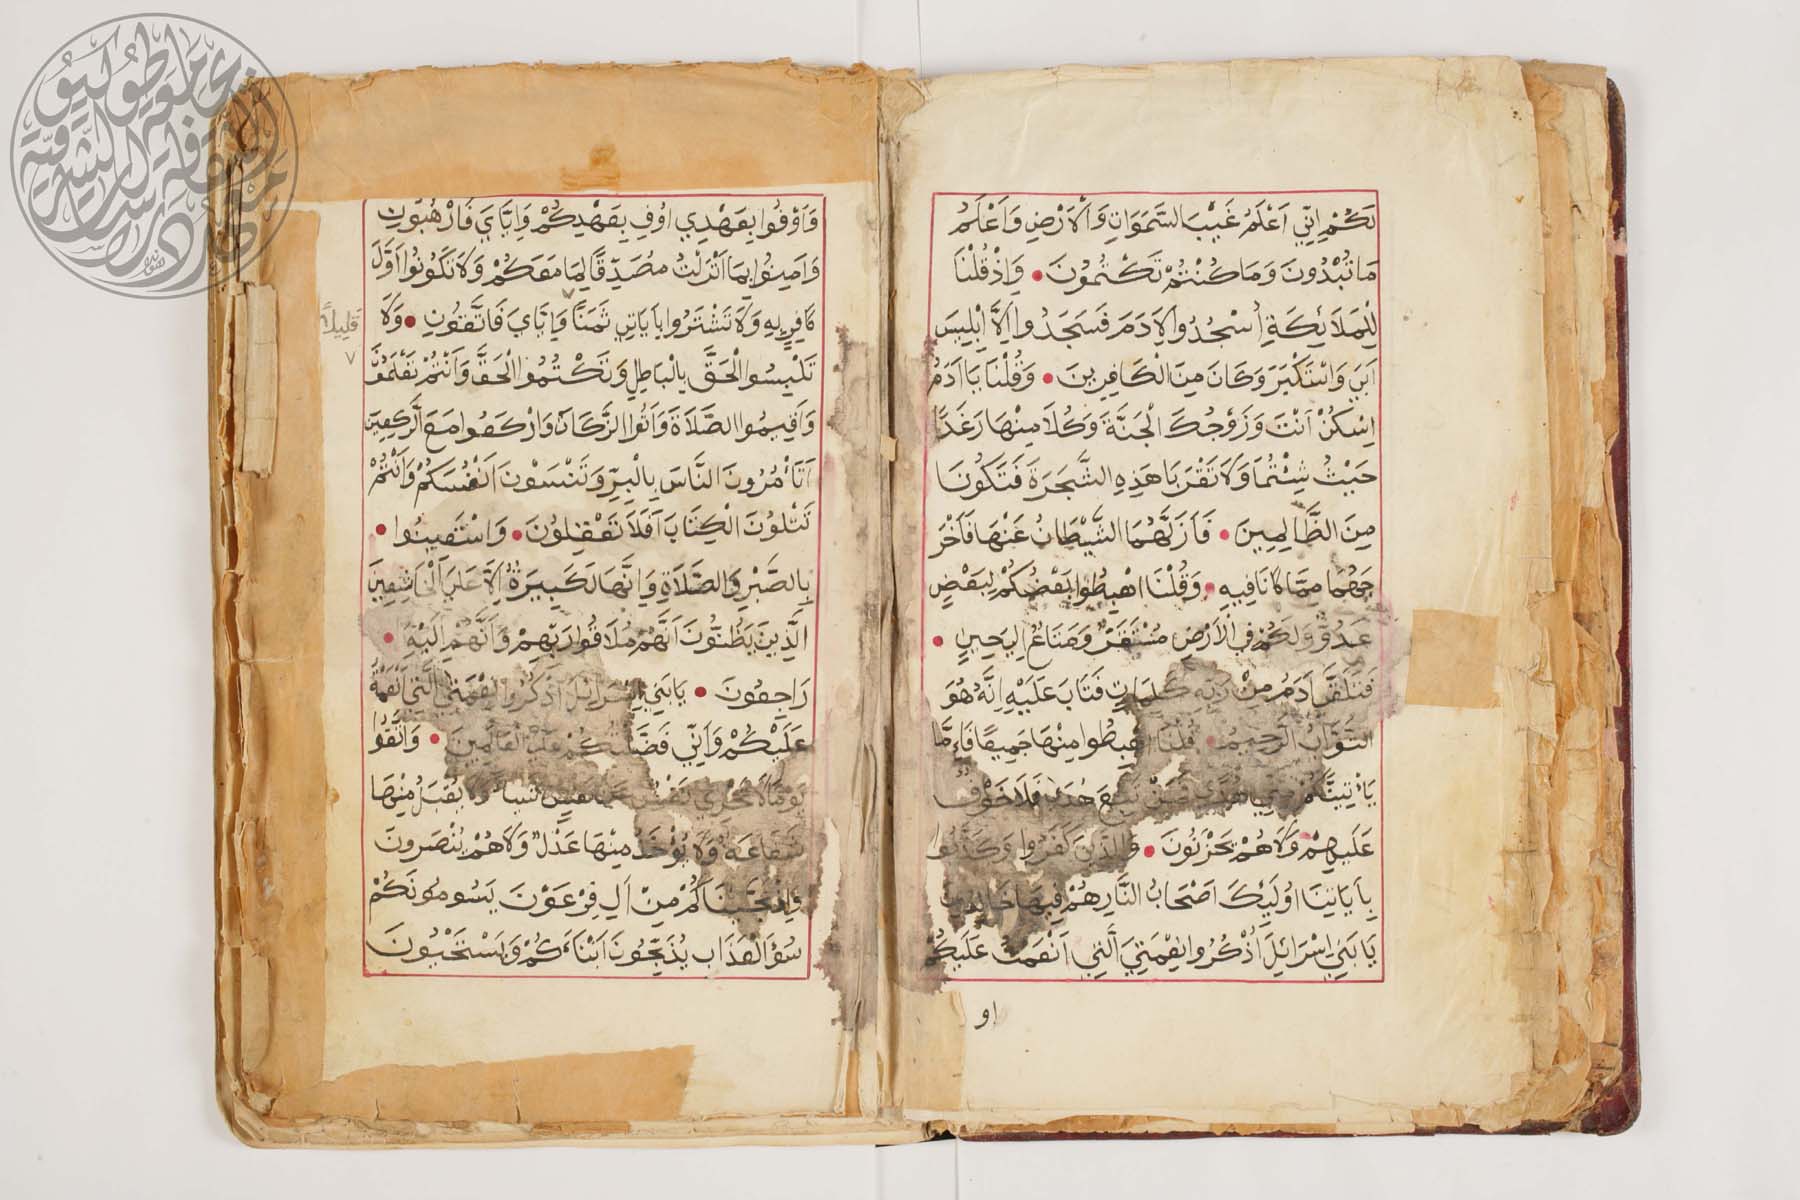 لَكُمْ اِنِّي اَعْلَمُ غَيْبَ السَّمَوَاتِ وَالْاَرْضِ وَاَعْلَمُ
مَا تُبْدُونَ وَمَا كُنْتُمْ تَكْتُمُونَ وَاِذْ قُلْنَا
لِلْمَلَائِكَةِ اُسْجُدُوا لِاَدَمَ فَسَجَدُوا اِلَّا اِبْلِيسَ
اَبَى وَاسْتَكْبَرَ وَكَانَ مِنَ الْكَافِرِينَ وَقُلْنَا يَا اَدَمُ
اِسْكُنْ اَنْتَ وَزَوْجُكَ الْجَنَّةَ وَكُلَا مِنْهَا رَغَدًا
حَيْثُ شِئْتُمَا وَلَا تَقْرَبَا هَذِهِ الشَّجَرَةَ فَتَكُونَا
مِنَ الظَّالِمِينَ فَاَزَلَّهُمَا الشَّيْطَانُ عَنْهَا فَاَخْرَ
جَهُمَا مِمَّا كَانَا فِيهِ وَقُلْنَا اهْبِطُوا بَعْضُكُمْ لِبَعْضٍ
عَدُوٌّ وَلَكُمْ فِي الْاَرْضِ مُسْتَقَرٌّ وَمَتَاعٌ اِلَى حِينٍ
فَتَلَقَّى اَدَمُ مِنْ رَبِّهِ كَلِمَاتٍ فَتَابَ عَلَيْهِ اِنَّهُ هُوَ
التَّوَّابُ الرَّحِيمُ قُلْنَا اهْبِطُوا مِنْهَا جَمِيعًا فَاِمَّا
يَأْتِيَنَّكُمْ مِنِّي هُدًى فَمَنْ تَبِعَ هُدَايَ فَلَا خَوْفٌ
عَلَيْهِمْ وَلَا هُمْ يَحْزَنُونَ وَالَّذِينَ كَفَرُوا وَكَذَّبُوا
بِاَيَاتِنَا اُولَئِكَ اَصْحَابُ النَّارِ هُمْ فِيهَا خَالِدُونَ
يَا بَنِي اِسْرَائِلَ اُذْكُرُوا نِعْمَتِيَ الَّتِي اَنْعَمْتُ عَلَيْكُمْ
او
وَاَوْفُوا بِعَهْدِي اُوفِ بِعَهْدِكُمْ وَاِيَّايَ فَارْهَبُونِ
وَاَمِنُوا بِمَا اَنْزَلْتُ مُصَدِّقًا لِمَا مَعَكُمْ وَلَا تَكُونُوا اَوَّلَ
كَافِرٍ بِهِ وَلَا تَشْتَرُوا بِاَيَاتِي ثَمَنًا وَاِيَّايَ فَاتَّقُونِ وَلَا
قَلِيلًا
تَلْبِسُوا الْحَقَّ بِالْبَاطِلِ وَتَكْتُمُوا الْحَقَّ وَاَنْتُمْ تَعْلَمُونَ
وَاَقِيمُوا الصَّلَاةَ وَاَتُوا الزَّكَاةَ وَارْكَعُوا مَعَ الرَّكِعِينَ
اَتَأْمُرُونَ النَّاسَ بِالْبِرِّ وَتَنْسَوْنَ اَنْفُسَكُمْ وَاَنْتُمْ
تَتْلُونَ الْكِتَابَ اَفَلَا تَعْقِلُونَ وَاسْتَعِينُوا
بِالصَّبْرِ وَالصَّلَاةِ وَاِنَّهَا لَكَبِيرَةٌ اِلَّا عَلَى الْخَاشِعِينَ
الَّذِينَ يَظُنُّونَ اَنَّهُمْ مُلَاقُوا رَبِّهِمْ وَاَنَّهُمْ اِلَيْهِ
رَاجِعُونَ يَا بَنِي اِسْرَائِلَ اذْكُرُوا نِعْمَتِيَ الَّتِي اَنْعَمْتُ
عَلَيْكُمْ وَاَنِّي فَضَّلْتُكُمْ عَلَى الْعَالَمِينَ وَاتَّقُوا
يَوْمًا لَا تَجْزِي نَفْسٌ عَنْ نَفْسٍ شَيْئًا وَلَا يُقْبَلُ مِنْهَا
شَفَاعَةٌ وَلَا يُؤْخَذُ مِنْهَا عَدْلٌ وَلَا هُمْ يُنْصَرُونَ
وَاِذْ نَجَّيْنَاكُمْ مِنْ اَلِ فِرْعَوْنَ يَسُومُونَكُمْ
سُوْٓءَ الْعَذَابِ يُذَبِّحُونَ اَبْنَاءَكُمْ وَيَسْتَحْيُونَ